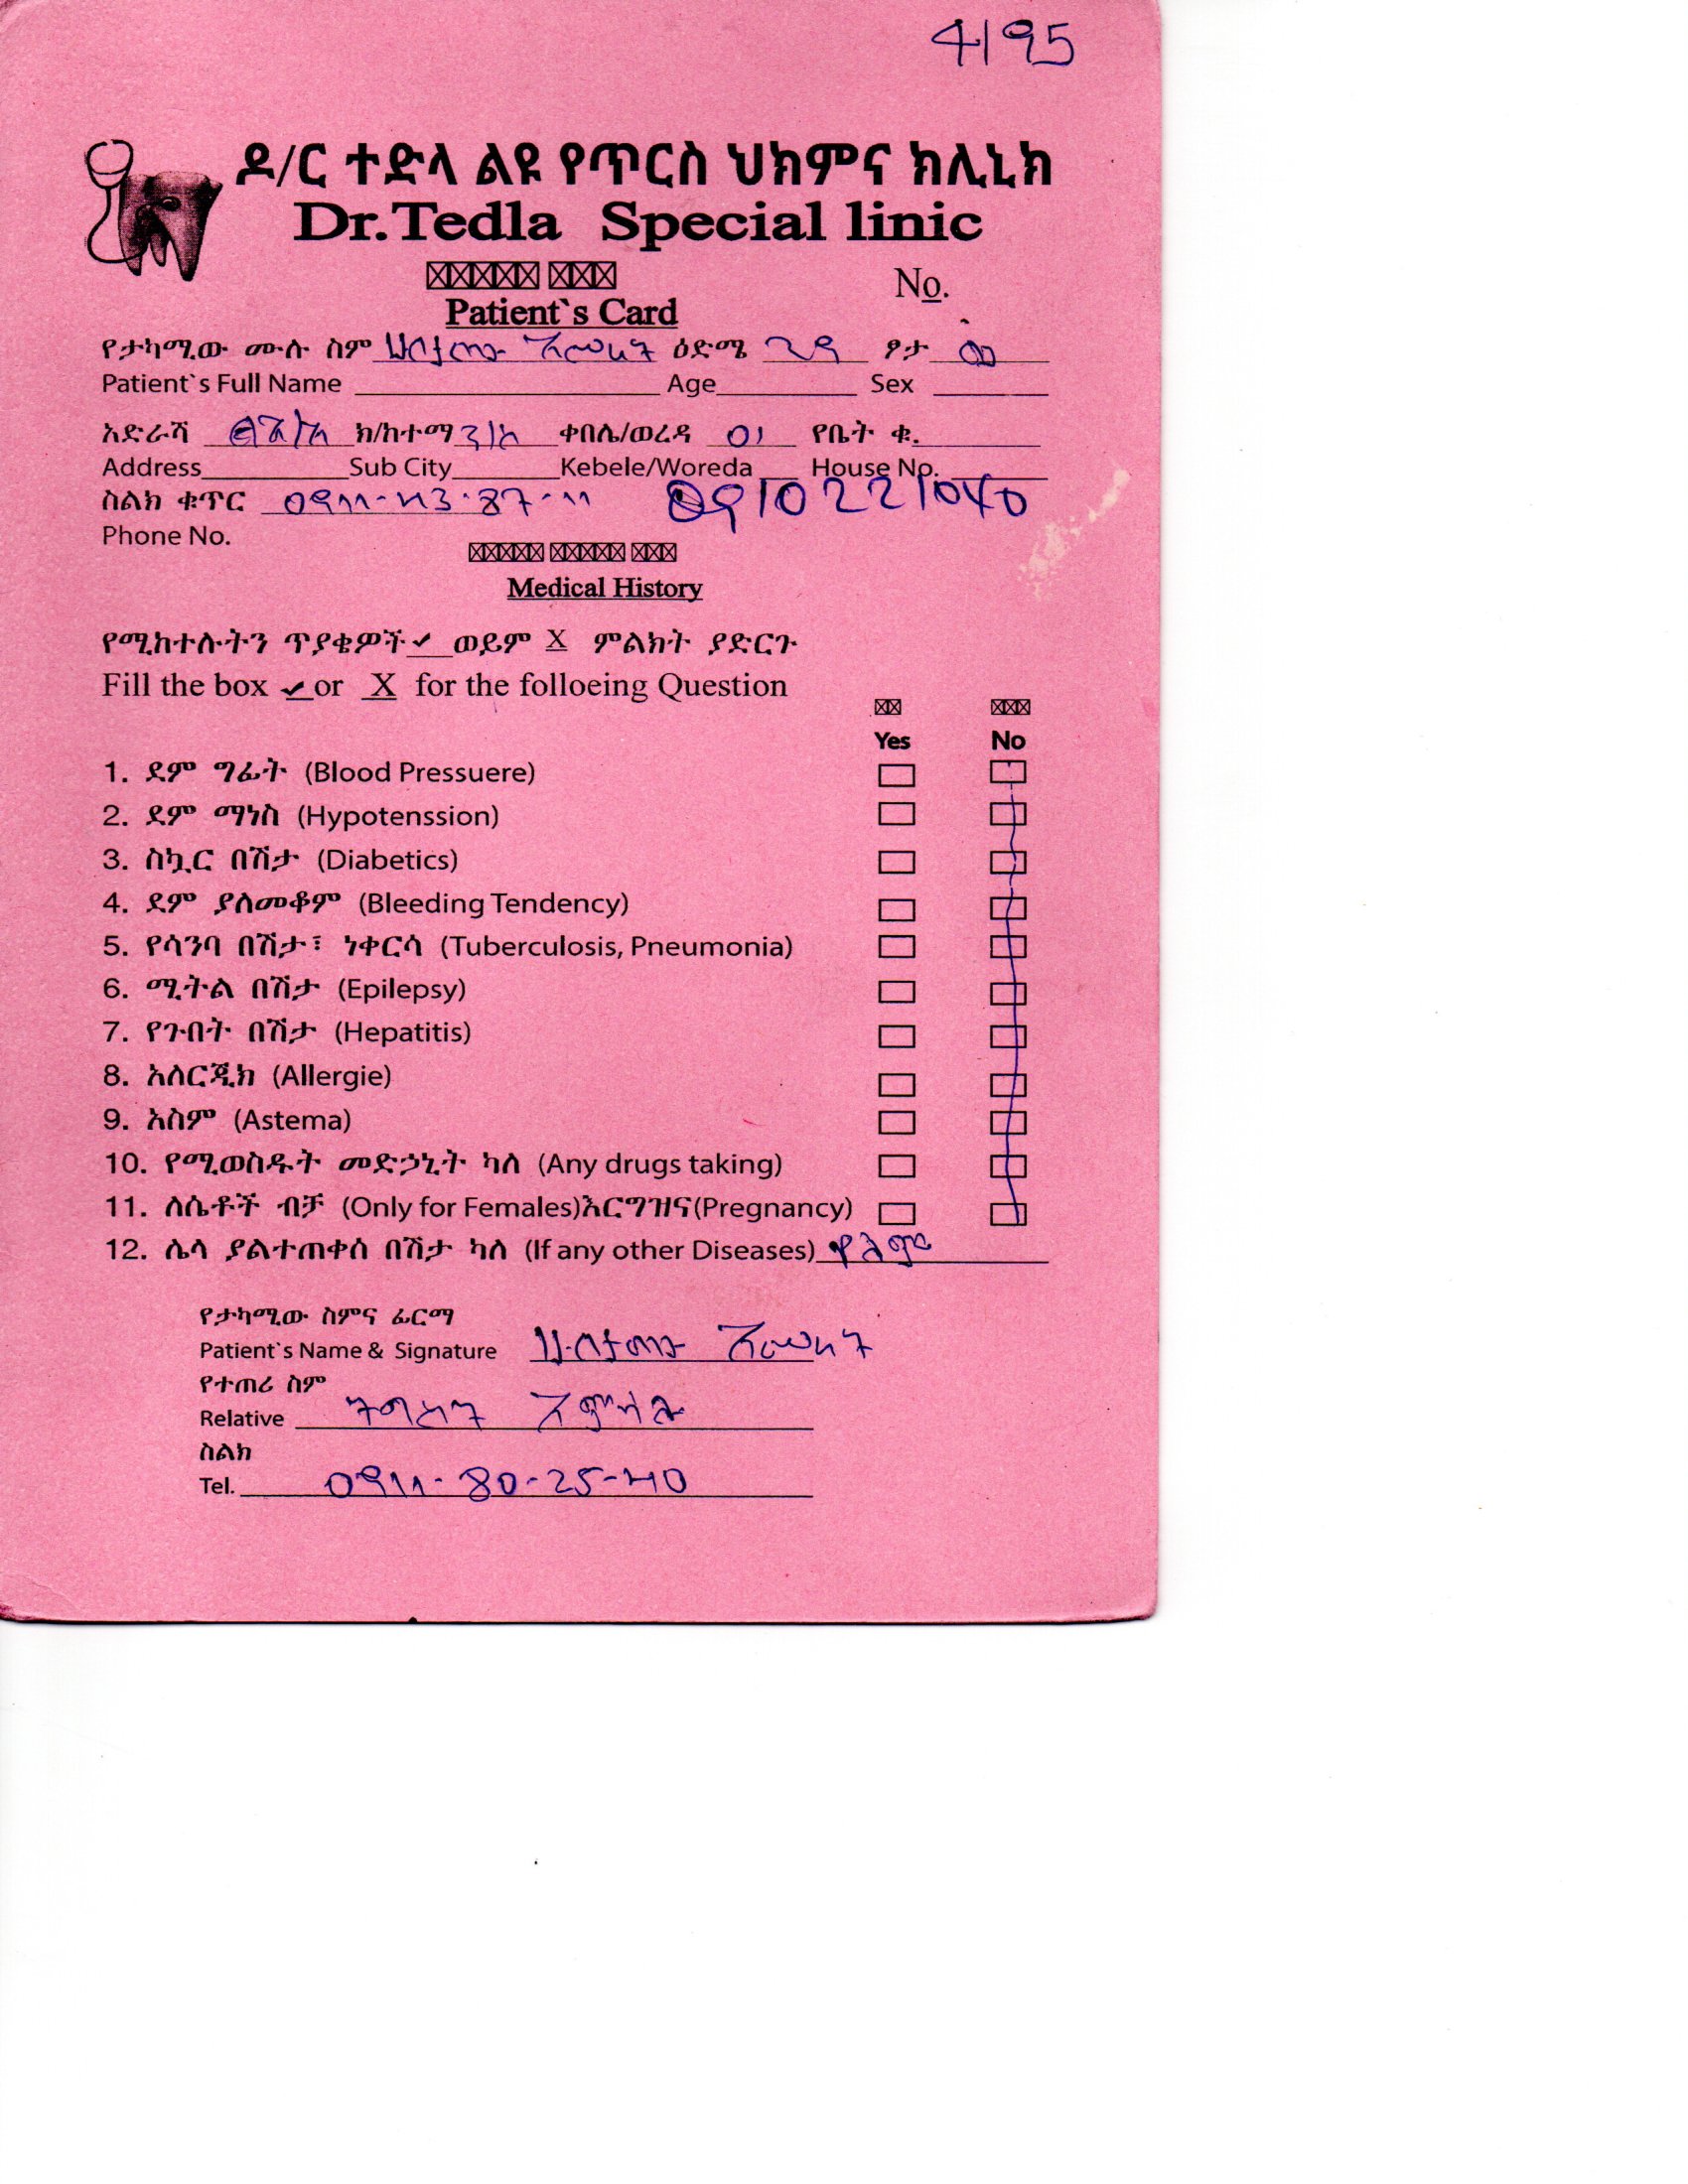 4195
ዶ/ር ተድላ ልዩ የጥርስ ህክምና ክሊኒክ
Dr.Tedla Special linic
No.
Patient`s Card
የታካሚው ሙሉ ስም ዕድሜ ፆታ
Patient`s Full Name Age Sex
አድራሻ ክ/ከተማ ቀበሌ/ወረዳ 01 የቤት ቁ.
Address Sub City Kebele/Woreda House No.
ስልክ ቁጥር 0911-43-87-11 0910221040
Phone No.
Medical History
የሚከተሉትን ጥያቄዎች ✓ ወይም X ምልክት ያድርጉ
Fill the box ✓ or X for the folloeing Question
Yes No
1. ደም ግፊት (Blood Pressuere)
2. ደም ማነስ (Hypotenssion)
3. ስኳር በሽታ (Diabetics)
4. ደም ያለመቆም (Bleeding Tendency)
5. የሳንባ በሽታ፣ ነቀርሳ (Tuberculosis, Pneumonia)
6. ሚትል በሽታ (Epilepsy)
7. የጉበት በሽታ (Hepatitis)
8. አለርጂክ (Allergie)
9. አስም (Astema)
10. የሚወስዱት መድኃኒት ካለ (Any drugs taking)
11. ለሴቶች ብቻ (Only for Females)እርግዝና(Pregnancy)
12. ሌላ ያልተጠቀሰ በሽታ ካለ (If any other Diseases) የለም
የታካሚው ስምና ፊርማ
Patient`s Name & Signature
የተጠሪ ስም
Relative
ስልክ
Tel. 0911-80-25-40